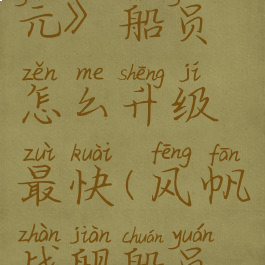 元》 船员
zěn me shēng jí
怎么升级
zuì kuài fēng fān
最快(风帆
zhàn jiàn chuán yuán
战舰船员